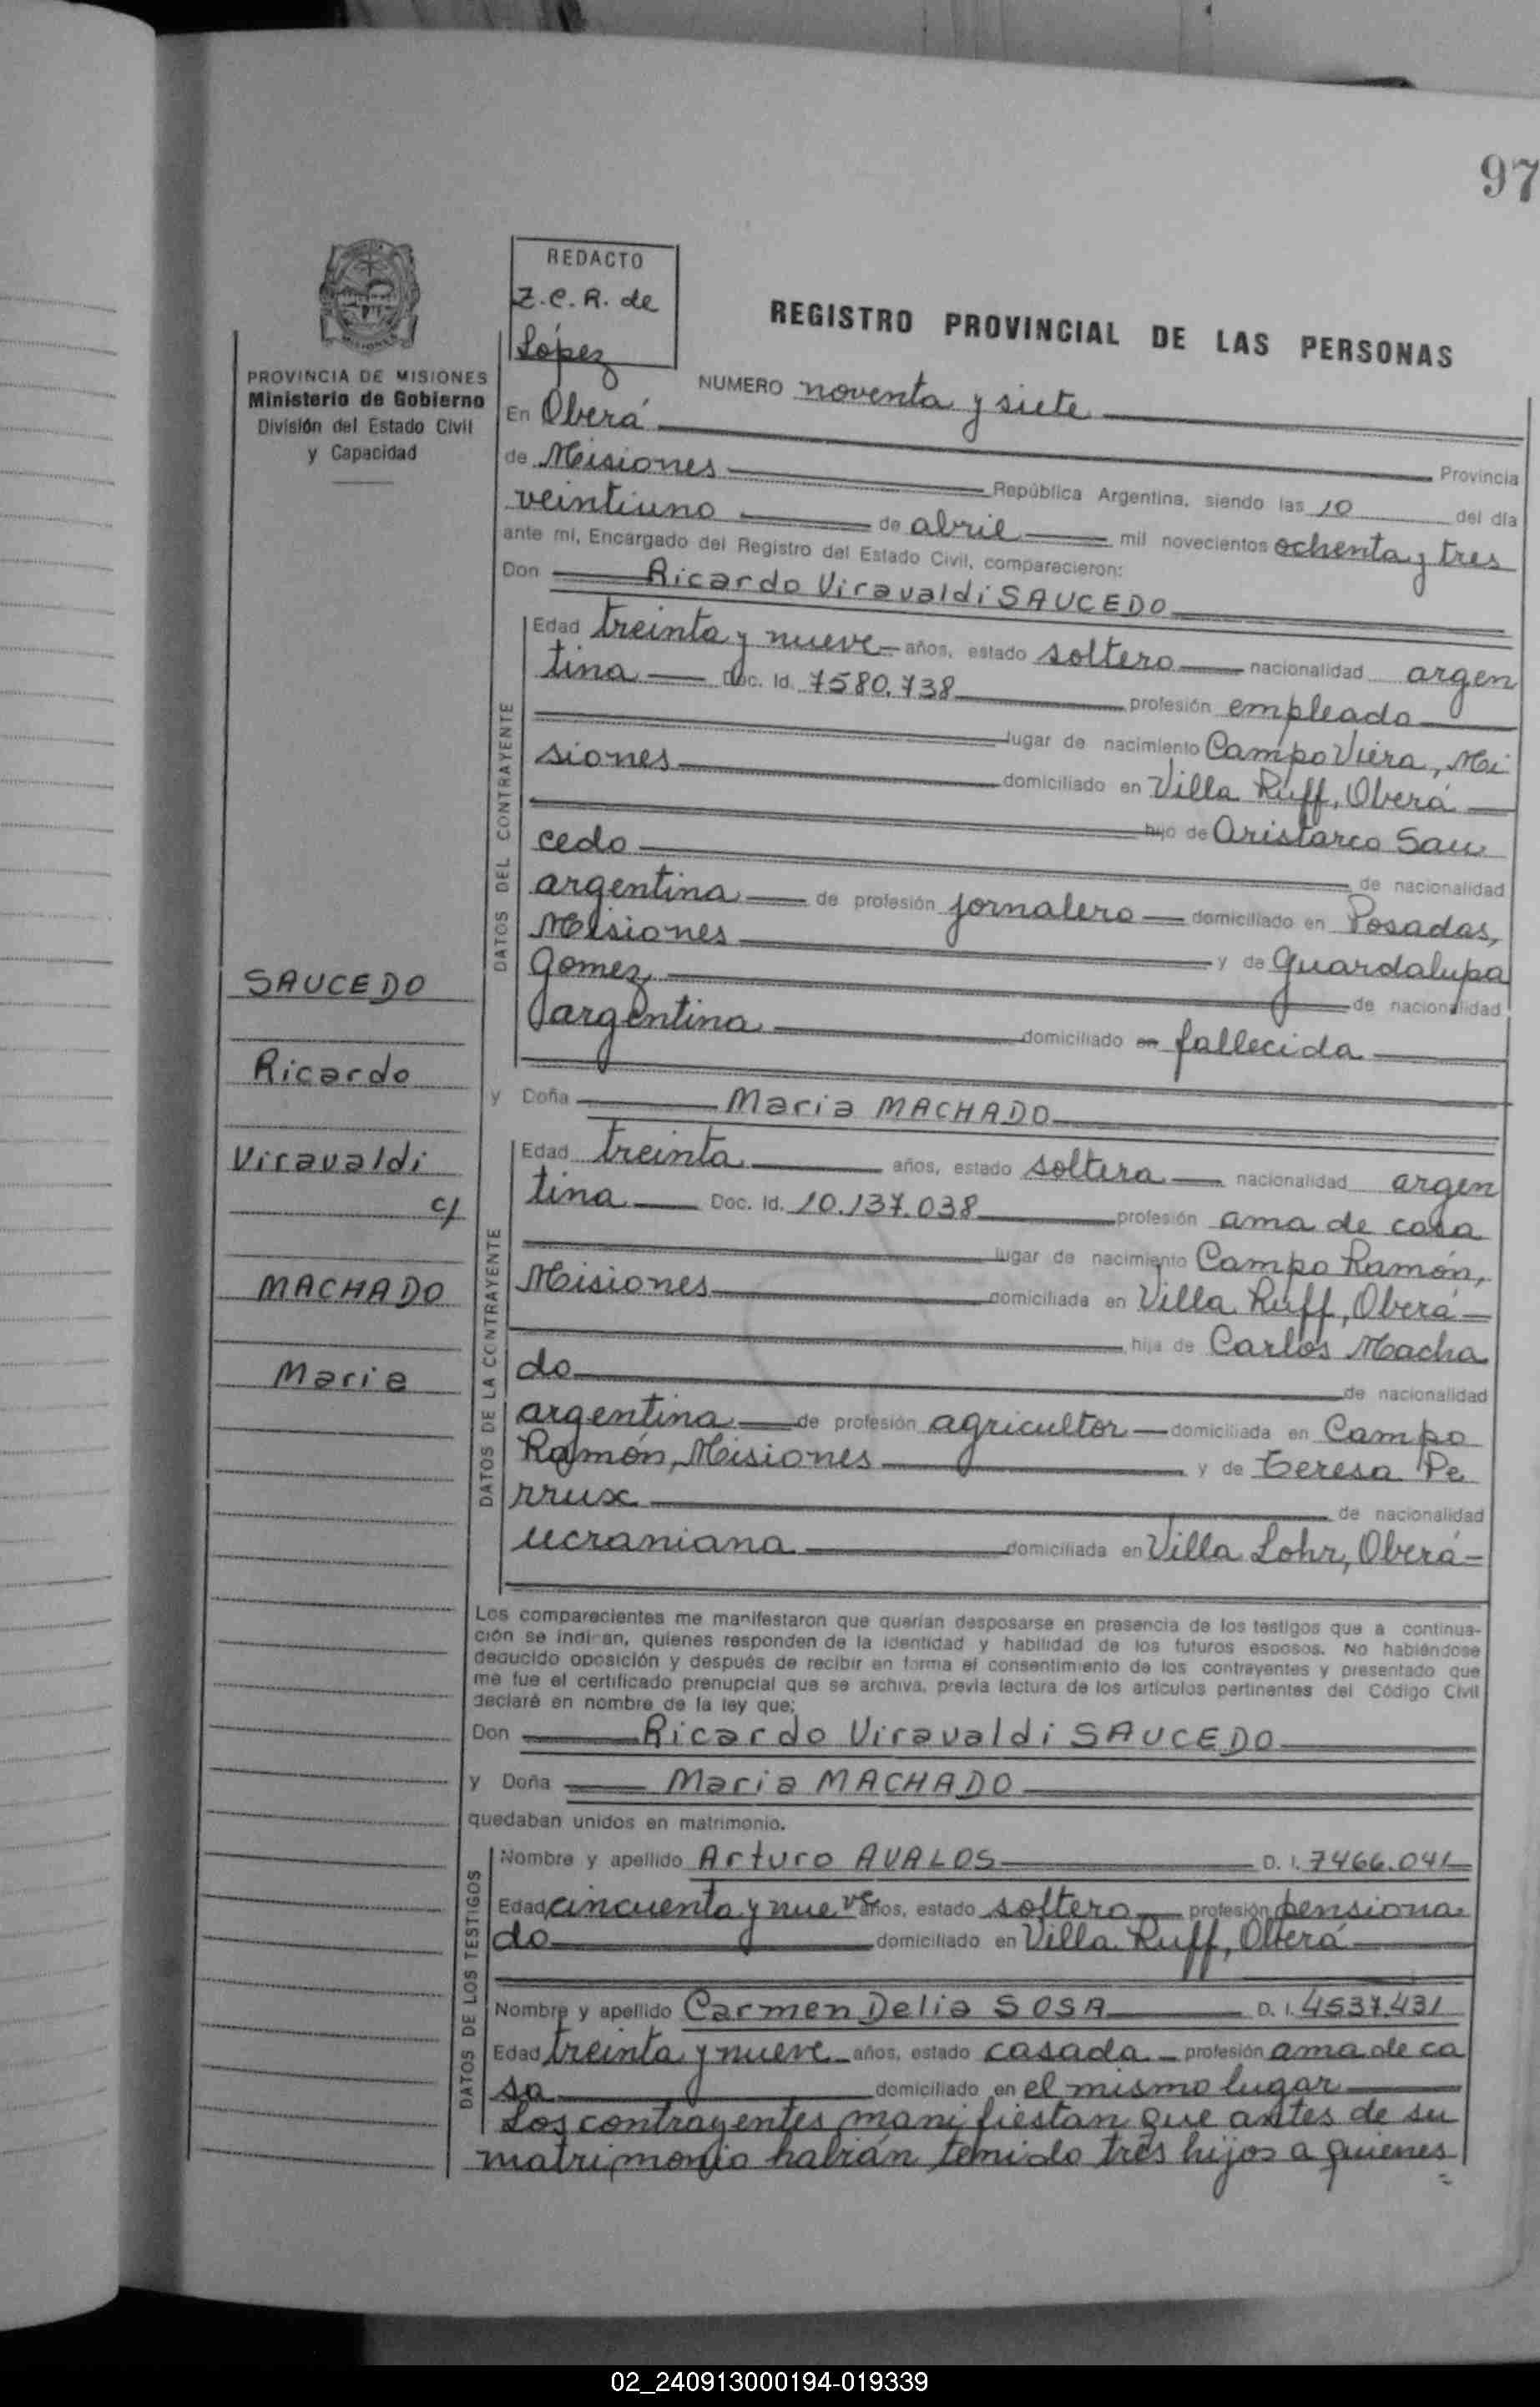 97
REDACTO
Z.C.R. de
López
REGISTRO PROVINCIAL DE LAS PERSONAS
PROVINCIA DE MISIONES
Ministerio de Gobierno
División del Estado Civil
y Capacidad
NUMERO noventa y siete
En Oberá Provincia
de Misiones República Argentina, siendo las 10 del día
veintiuno de abril mil novecientos ochenta y tres
ante mí, Encargado del Registro del Estado Civil, comparecieron:
Don Ricardo Viravaldi SAUCEDO
DATOS DEL CONTRAYENTE
Edad treinta y nueve años, estado soltero nacionalidad argen
tina Doc. Id. 7580.738 profesión empleado
lugar de nacimiento Campo Viera, Mi
siones domiciliado en Villa Ruff, Oberá
hijo de Aristarco Sau
cedo de nacionalidad
argentina de profesión jornalero domiciliado en Posadas,
Misiones y de Guardalupa
Gomez de nacionalidad
argentina domiciliado en fallecida
y Doña Maria MACHADO
DATOS DE LA CONTRAYENTE
Edad treinta años, estado soltera nacionalidad argen
tina Doc. Id. 10.137.038 profesión ama de casa
lugar de nacimiento Campo Ramón,
Misiones domiciliada en Villa Ruff, Oberá
hija de Carlos Macha
do de nacionalidad
argentina de profesión agricultor domiciliada en Campo
Ramón, Misiones y de Teresa Pe
rrux de nacionalidad
ucraniana domiciliada en Villa Lohr, Oberá
SAUCEDO
Ricardo
Viravaldi
c/
MACHADO
Maria
Los comparecientes me manifestaron que querían desposarse en presencia de los testigos que a continua-
ción se indican, quienes responden de la identidad y habilidad de los futuros esposos. No habiéndose
deducido oposición y después de recibir en forma el consentimiento de los contrayentes y presentado que
me fue el certificado prenupcial que se archiva, previa lectura de los artículos pertinentes del Código Civil
declaré en nombre de la ley que;
Don Ricardo Viravaldi SAUCEDO
y Doña Maria MACHADO
quedaban unidos en matrimonio.
DATOS DE LOS TESTIGOS
Nombre y apellido Arturo AVALOS D. I. 7466.041
Edad cincuenta y nueve años, estado soltero profesión pensiona
do domiciliado en Villa Ruff, Oberá
Nombre y apellido Carmen Delia SOSA D. I. 4537.431
Edad treinta y nueve años, estado casada profesión ama de ca
sa domiciliado en el mismo lugar
Los contrayentes manifiestan que antes de su
matrimonio habían tenido tres hijos a quienes
02_240913000194-019339